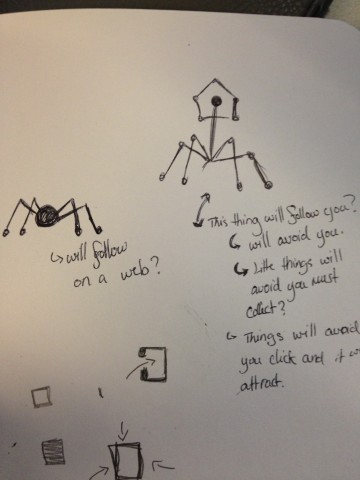 will follow
on a web?
This thing will follow you?
will avoid you.
Little things will
avoid you must
collect?
Things will avoid
you click and it w
attract.